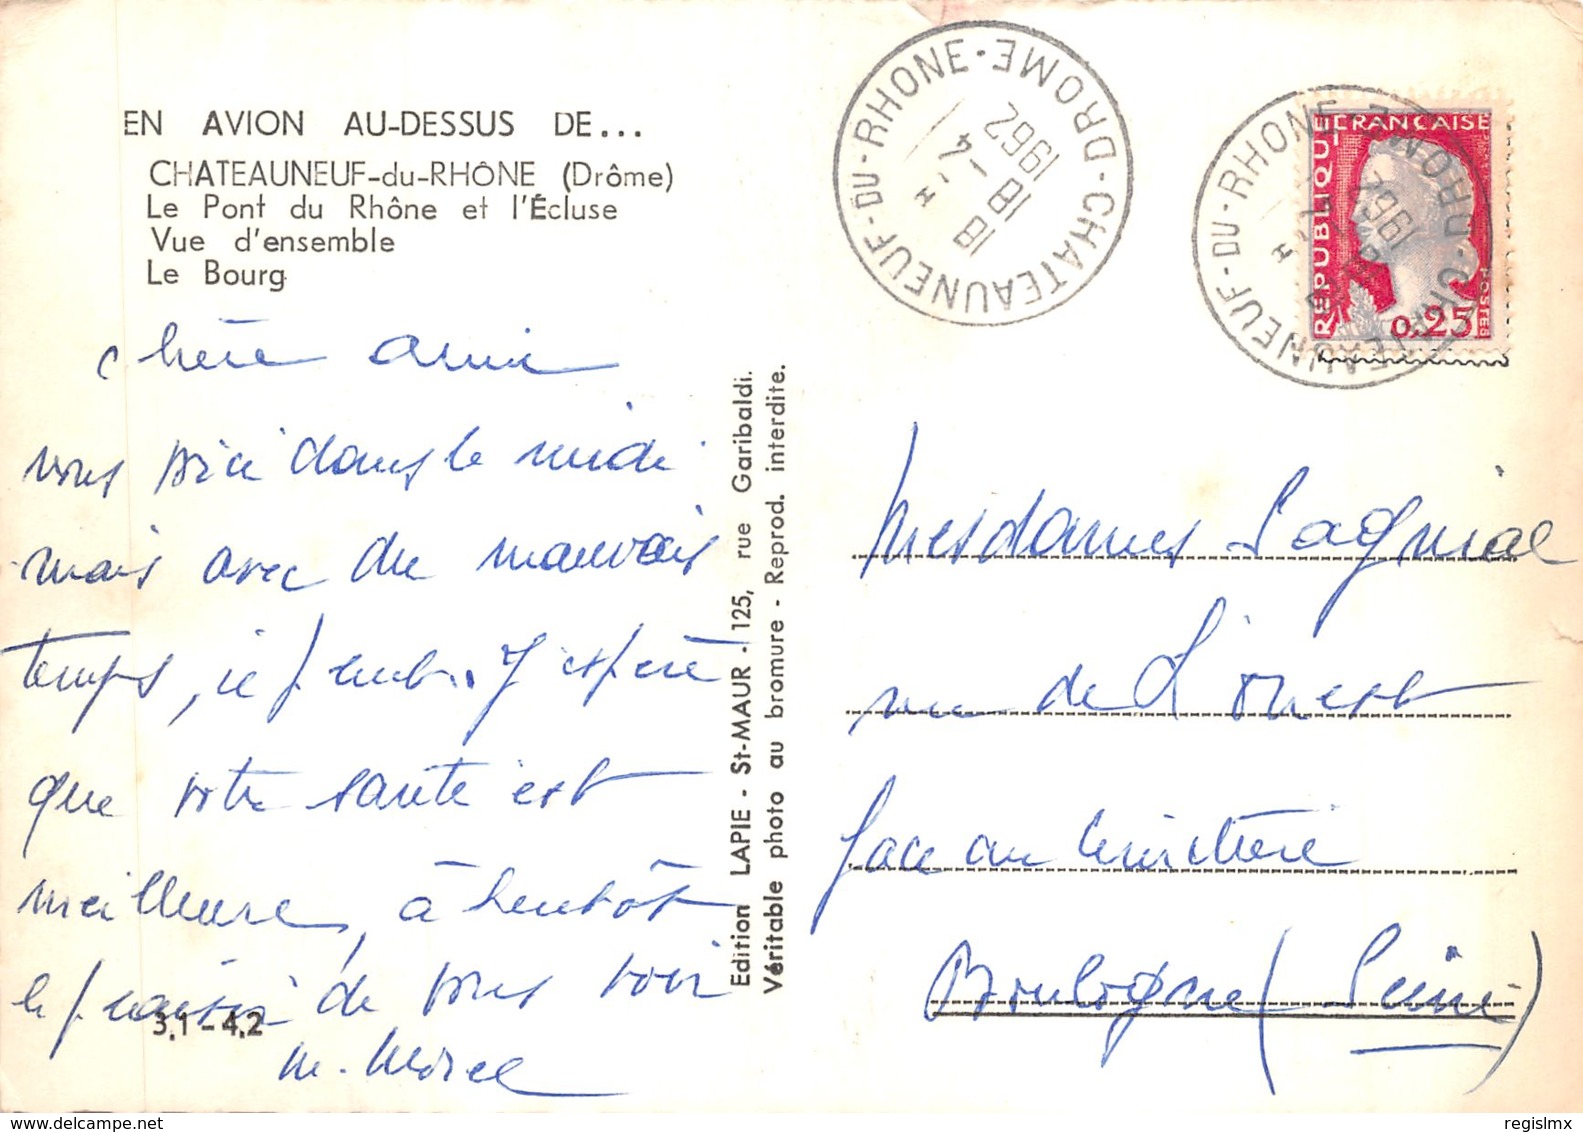 EN AVION AU-DESSUS DE...
CHATEAUNEUF-du-RHÔNE (Drôme)
Le Pont du Rhône et l'Écluse
Vue d'ensemble
Le Bourg
chère amie
nous voici dans le midi
mais avec du mauvais
temps, J'espère
que votre santé est
meilleure, à bientôt
le plaisir de vous voir
M. Morel
3.1 - 4.2
Edition LAPIE - St-MAUR - 125, rue Garibaldi.
Véritable photo au bromure - Reprod. interdite.
CHATEAUNEUF-DU-RHONE · DROME
18 H
18 - 4
1962
CHATEAUNEUF-DU-RHONE · DROME
1962
REPUBLIQUE FRANÇAISE
POSTES
0,25
Mesdames
rue de L'ouest
face au Cimetière
Boulogne (Seine)
regislmx